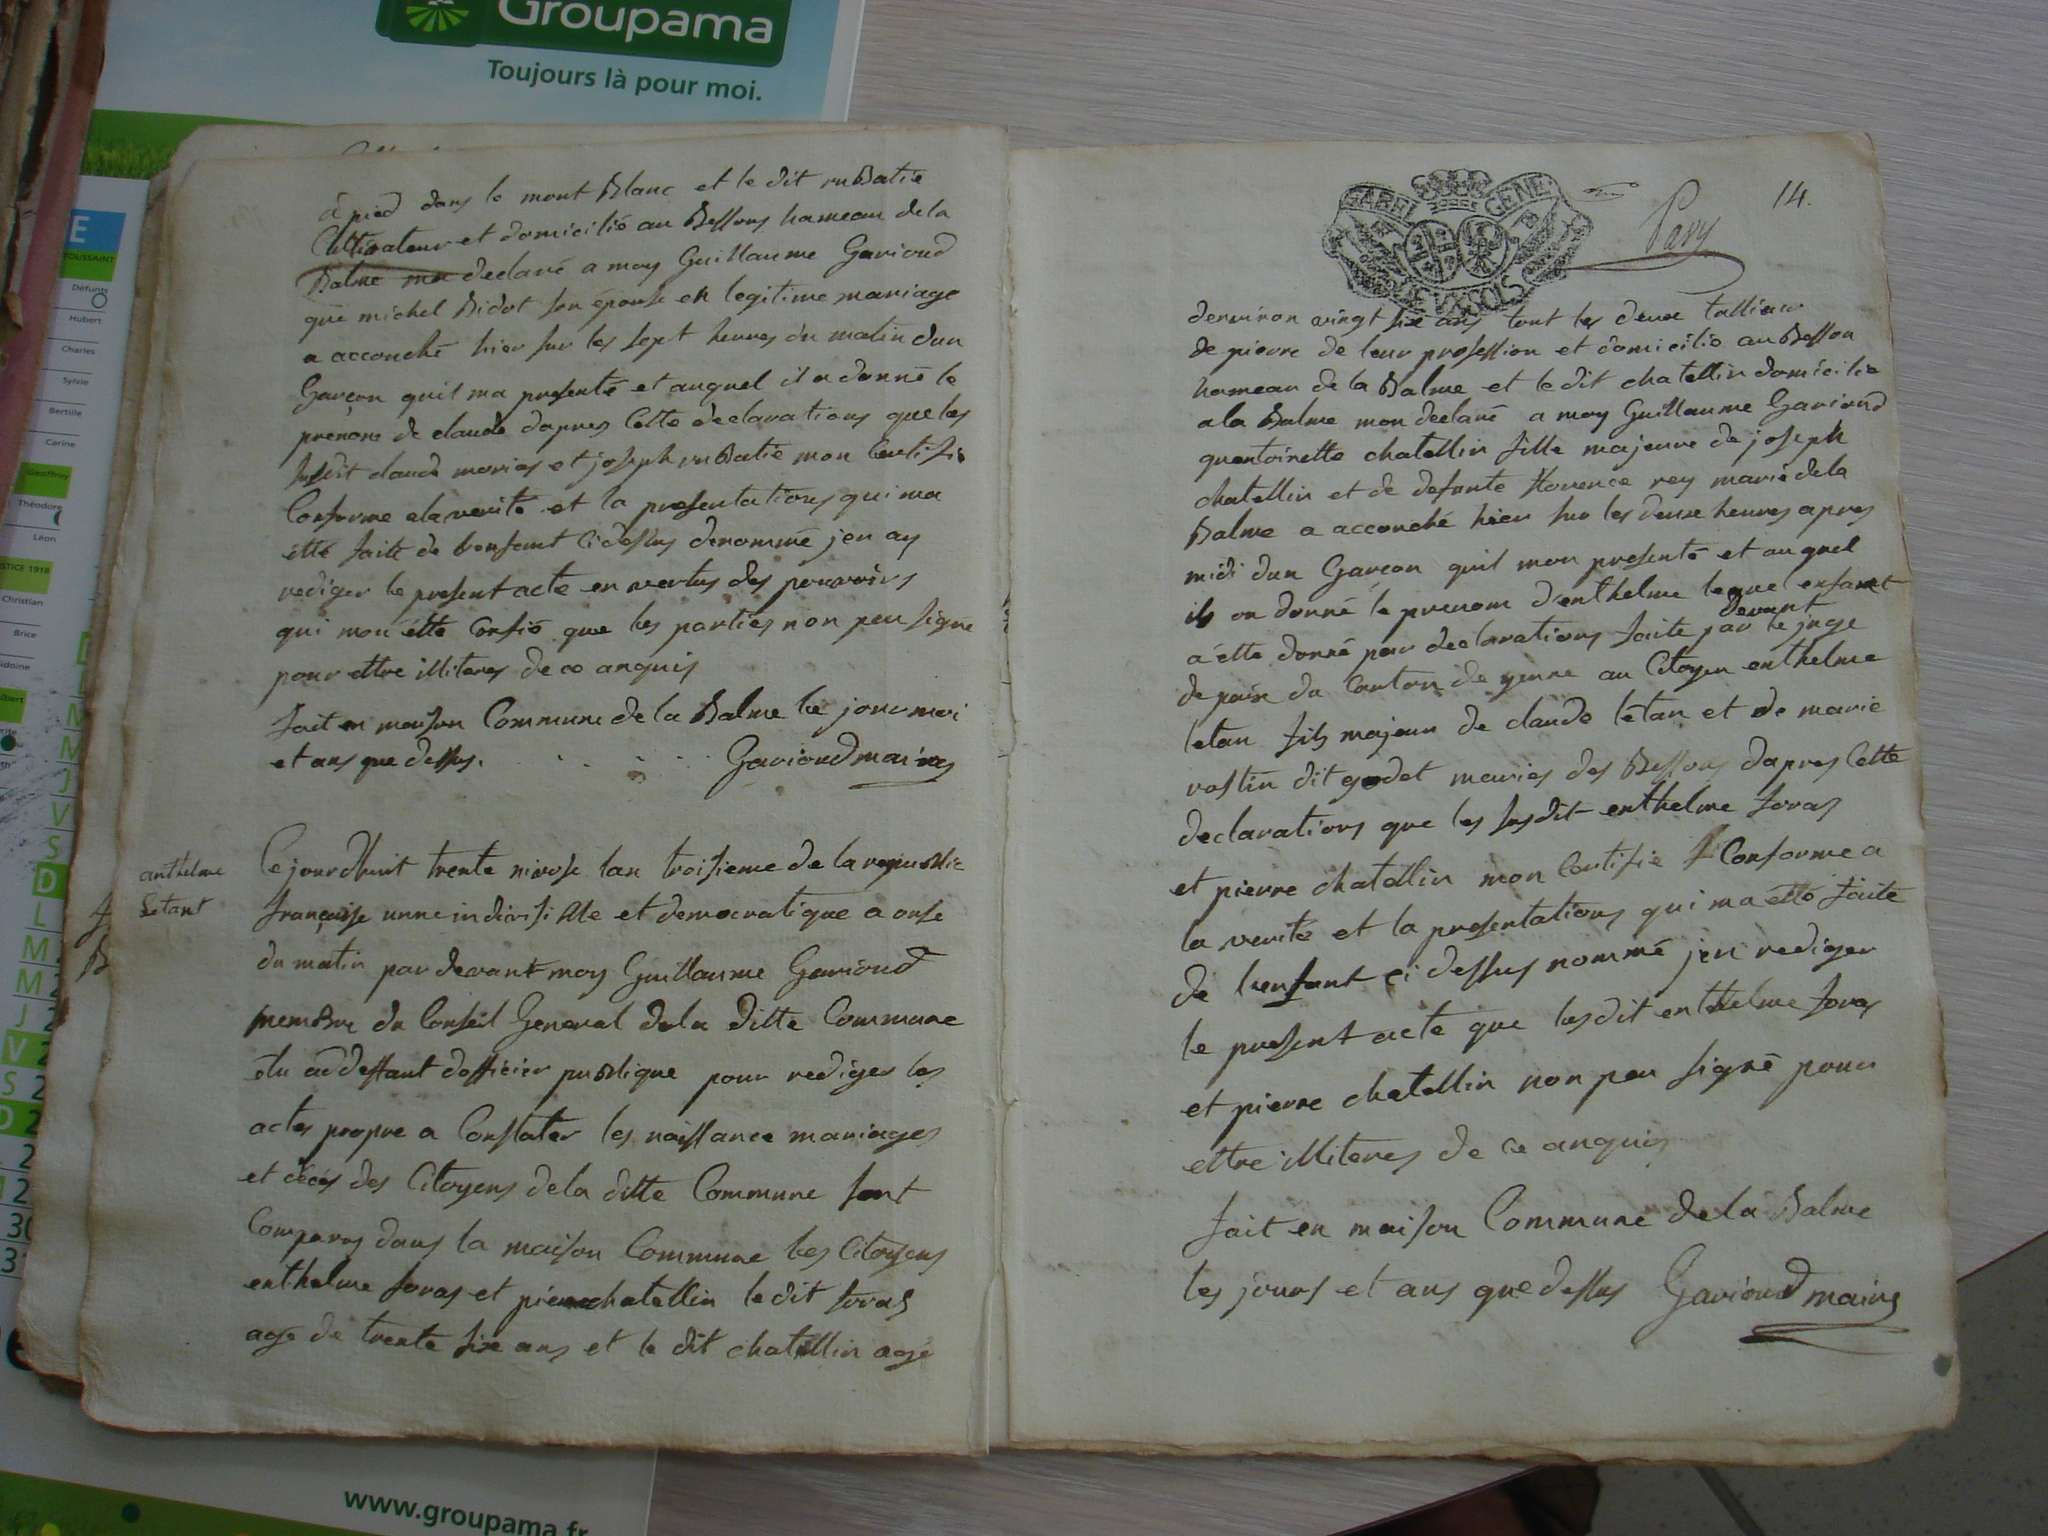 Groupama
Toujours là pour moi.
à pied dans le mont Blanc et le dit ruBatie
Cultivateur et domicilié au Bessons hameau de la
Balme ma declaré a moy Guillaume Garioud
que michel Bidot son épouse en legitime mariage
a accouché hier sur les sept heures du matin dun
Garçon quil ma presenté et auquel il a donné le
prenom de claude dapres Cette declarations que les
susdit claude et joseph ruBatie mon Certifié
Conforme ala verité et la presentations qui ma
etté faite de lenfant Cidessus denommé jen ay
rediger le present acte en vertus des pouvoirs
qui mon étté Confié que les parties non peu signe
pour ettre illiteres de ce anquis
fait en maison Commune de la Balme le jour moi
et ans que dessus. Garioud maire
anthelme
Letant
Ce jourdhuit trente nivose lan troisieme de la republic
françaisse unne indivisible et democratique a onse
du matin par devant moy Guillaume Garioud
membre du Conseil General dela ditte Commune
élu defficier publique pour rediger les
actes propre a Constater les naissance mariages
et décés des Citoyens dela ditte Commune sont
Comparus dans la maison Commune les Citoyens
enthelme soras et pierre chatellin le dit soras
agé de trente six ans et le dit chatellin agé
14.
Pavy
GABEL GENE
denviron vingt six ans tout les deux tallieur
de pierre de leur profession et domicilié au Besson
hameau de la Balme et le dit chatellin domicilié
a la Balme mon declaré a moy Guillaume Garioud
quantoinette chatellin fille majeure de joseph
chatellin et de defunte florence rey marié dela
Balme a accouché hier sur les deux heures apres
midi dun Garçon quil mon presenté et au quel
ils on donné le prenom denthelme lequel enfant
a étte donné par declarations faite par devant le juge
de paix du Canton de yenne au Citoyen enthelme
letan fils majeur de claude létan et de marie
vostin dit godet mariés des Bessons dapres Cette
declarations que les susdit enthelme soras
et pierre chatellin mon Certifié Conforme a
la verité et la presentations qui ma étté faite
de lenfant ci dessus nommé jen rediger
le present acte que lesdit enthelme soras
et pierre chatellin non peu signé pour
ettre illiteres de ce anquis
fait en maison Commune de la Balme
les jours et ans que dessus Garioud maire
E
TOUSSAINT
Défunts
Hubert
Charles
Sylvie
Bertille
Carine
Geoffroy
Théodore
Léon
Christian
Brice
www.groupama.fr